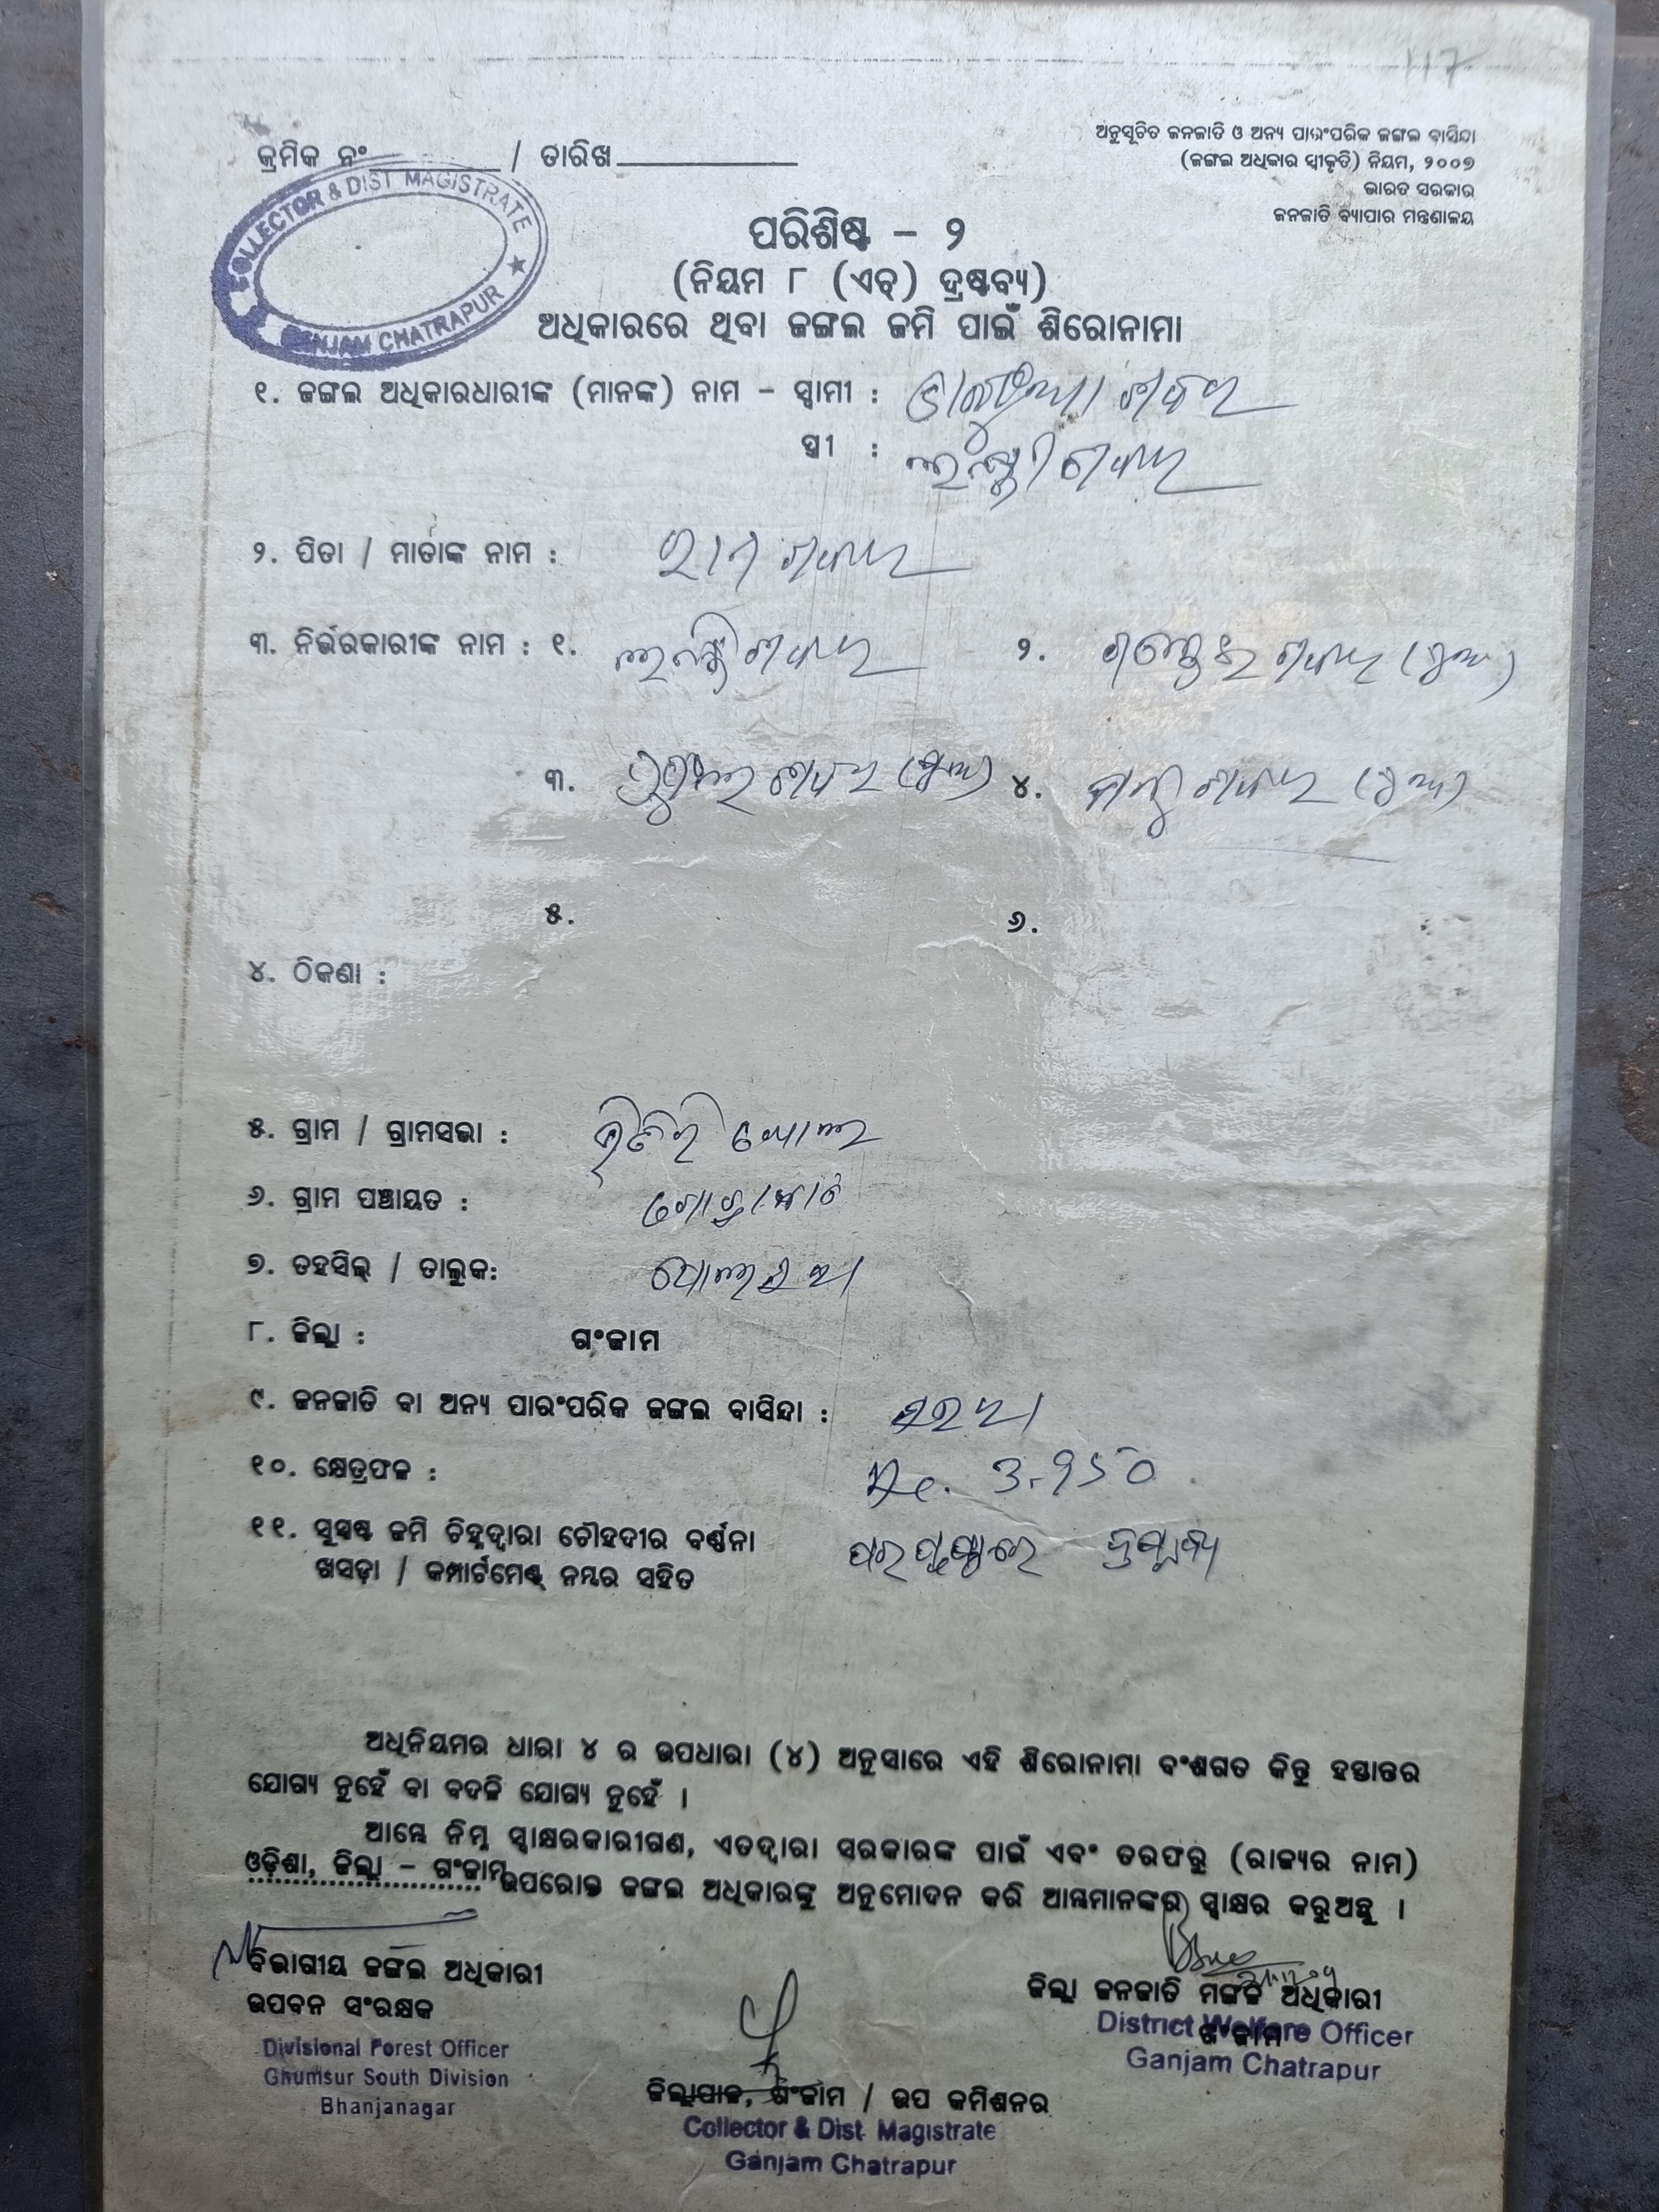 117
ଅନୁସୂଚିତ ଜନଜାତି ଓ ଅନ୍ୟ ପାରଂପରିକ ଜଙ୍ଗଲ ବାସିନ୍ଦା
(ଜଙ୍ଗଲ ଅଧିକାର ସ୍ୱୀକୃତି) ନିୟମ, ୨୦୦୭
ଭାରତ ସରକାର
ଜନଜାତି ବ୍ୟାପାର ମନ୍ତ୍ରଣାଳୟ
କ୍ରମିକ ନଂ / ତାରିଖ
COLLECTOR & DIST MAGISTRATE
GANJAM CHATRAPUR
ପରିଶିଷ୍ଟ – ୨
(ନିୟମ ୮ (ଏଚ୍) ଦ୍ରଷ୍ଟବ୍ୟ)
ଅଧିକାରରେ ଥିବା ଜଙ୍ଗଲ ଜମି ପାଇଁ ଶିରୋନାମା
୧. ଜଙ୍ଗଲ ଅଧିକାରଧାରୀଙ୍କ (ମାନଙ୍କ) ନାମ – ସ୍ୱାମୀ : ଶବର
ସ୍ତ୍ରୀ : ଲକ୍ଷ୍ମୀ ଶବର
୨. ପିତା / ମାତାଙ୍କ ନାମ : ଶବର
୩. ନିର୍ଭରକାରୀଙ୍କ ନାମ : ୧. ଲକ୍ଷ୍ମୀ ଶବର ୨. ଶବର (ପୁଅ)
୩. ଶବର (ପୁଅ) ୪. ଶବର (ପୁଅ)
୫. ୬.
୪. ଠିକଣା :
୫. ଗ୍ରାମ / ଗ୍ରାମସଭା :
୬. ଗ୍ରାମ ପଞ୍ଚାୟତ :
୭. ତହସିଲ୍ / ତାଲୁକ: ପୋଲସରା
୮. ଜିଲ୍ଲା : ଗଂଜାମ
୯. ଜନଜାତି ବା ଅନ୍ୟ ପାରଂପରିକ ଜଙ୍ଗଲ ବାସିନ୍ଦା :
୧୦. କ୍ଷେତ୍ରଫଳ : Ac.
୧୧. ସୁସ୍ପଷ୍ଟ ଜମି ଚିହ୍ନଦ୍ୱାରା ଚୌହଦୀର ବର୍ଣ୍ଣନା
ଖସଡ଼ା / କମ୍ପାର୍ଟମେଣ୍ଟ୍ ନମ୍ଭର ସହିତ ପର ପୃଷ୍ଠାରେ ଦ୍ରଷ୍ଟବ୍ୟ
ଅଧିନିୟମର ଧାରା ୪ ର ଉପଧାରା (୪) ଅନୁସାରେ ଏହି ଶିରୋନାମା ବଂଶଗତ କିନ୍ତୁ ହସ୍ତାନ୍ତର
ଯୋଗ୍ୟ ନୁହେଁ ବା ବଦଳି ଯୋଗ୍ୟ ନୁହେଁ ।
ଆମ୍ଭେ ନିମ୍ନ ସ୍ୱାକ୍ଷରକାରୀଗଣ, ଏତଦ୍ୱାରା ସରକାରଙ୍କ ପାଇଁ ଏବଂ ତରଫରୁ (ରାଜ୍ୟର ନାମ)
ଓଡ଼ିଶା, ଜିଲ୍ଲା – ଗଂଜାମ ଉପରୋକ୍ତ ଜଙ୍ଗଲ ଅଧିକାରଙ୍କୁ ଅନୁମୋଦନ କରି ଆମ୍ଭମାନଙ୍କର ସ୍ୱାକ୍ଷର କରୁଅଛୁ ।
ବିଭାଗୀୟ ଜଙ୍ଗଲ ଅଧିକାରୀ
ଉପବନ ସଂରକ୍ଷକ
Divisional Forest Officer
Ghumsur South Division
Bhanjanagar
ଜିଲ୍ଲା ଜନଜାତି ମଙ୍ଗଳ ଅଧିକାରୀ
ଗଂଜାମ
District Welfare Officer
Ganjam Chatrapur
ଜିଲ୍ଲାପାଳ, ଗଂଜାମ / ଉପ କମିଶନର
Collector & Dist. Magistrate
Ganjam Chatrapur